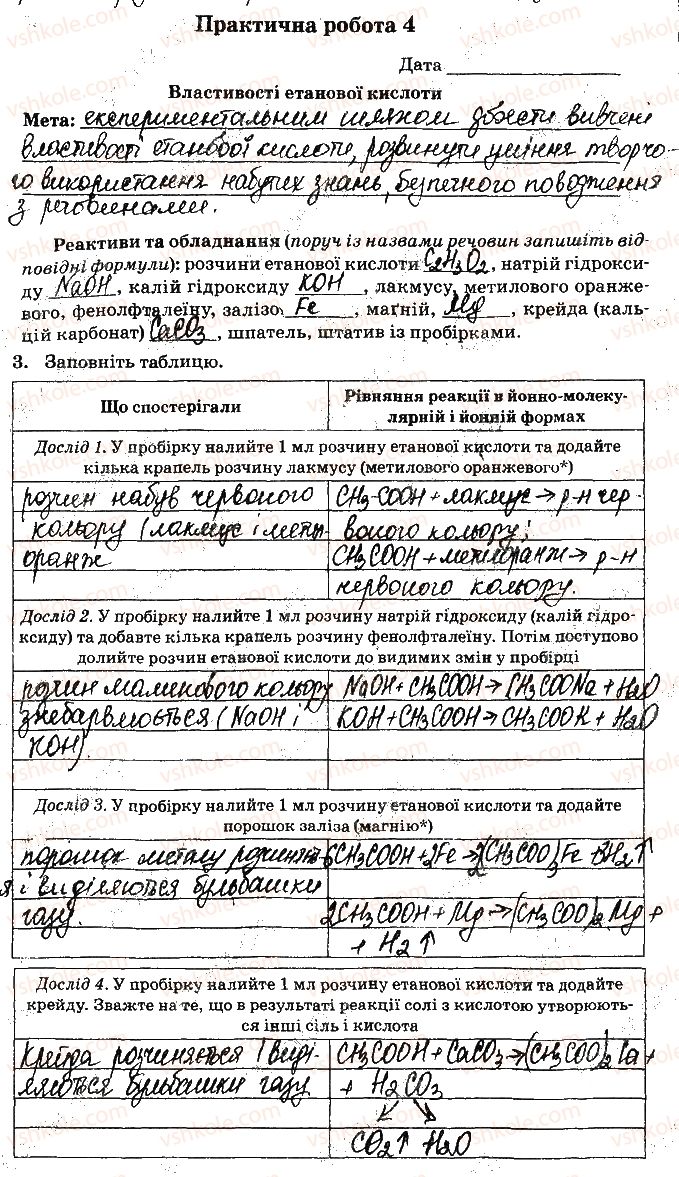 Практична робота 4
Дата
Властивості етанової кислоти
Мета: експериментальним шляхом з'ясти вивчені
властивості етанової кислоти, розвинути уміння творчо-
го використання набутих знань, безпечного поводження
з речовинами.
Реактиви та обладнання (поруч із назвами речовин запишіть від-
повідні формули): розчини етанової кислоти C2H3O2, натрій гідрокси-
ду NaOH, калій гідроксиду KOH, лакмусу, метилового оранже-
вого, фенолфталеїну, залізо Fe, маґній, Mg, крейда (каль-
цій карбонат) CaCO3, шпатель, штатив із пробірками.
3. Заповніть таблицю.
Що спостерігали
Рівняння реакції в йонно-молеку-
лярній і йонній формах
Дослід 1. У пробірку налийте 1 мл розчину етанової кислоти та додайте
кілька крапель розчину лакмусу (метилового оранжевого*)
розчин набув червоного
кольору (лакмус і метил
оранж
CH3-COOH + лакмус → р-н чер-
воного кольору;
CH3COOH + метилоранж → р-н
червоного кольору.
Дослід 2. У пробірку налийте 1 мл розчину натрій гідроксиду (калій гідро-
ксиду) та добавте кілька крапель розчину фенолфталеїну. Потім поступово
долийте розчин етанової кислоти до видимих змін у пробірці
розчин малинового кольору
знебарвлюється (NaOH і
KOH).
NaOH + CH3COOH → CH3COONa + H2O
KOH + CH3COOH → CH3COOK + H2O
Дослід 3. У пробірку налийте 1 мл розчину етанової кислоти та додайте
порошок заліза (магнію*)
порошок металу розчиняєть-
я і виділяються бульбашки
газу.
6CH3COOH + 2Fe → 2(CH3COO)3Fe + 3H2↑
2CH3COOH + Mg → (CH3COO)2Mg +
+ H2↑
Дослід 4. У пробірку налийте 1 мл розчину етанової кислоти та додайте
крейду. Зважте на те, що в результаті реакції солі з кислотою утворюють-
ся інші сіль і кислота
Крейда розчиняється і виді-
ляються бульбашки газу
CH3COOH + CaCO3 → (CH3COO)2Ca +
+ H2CO3
CO2↑ H2O